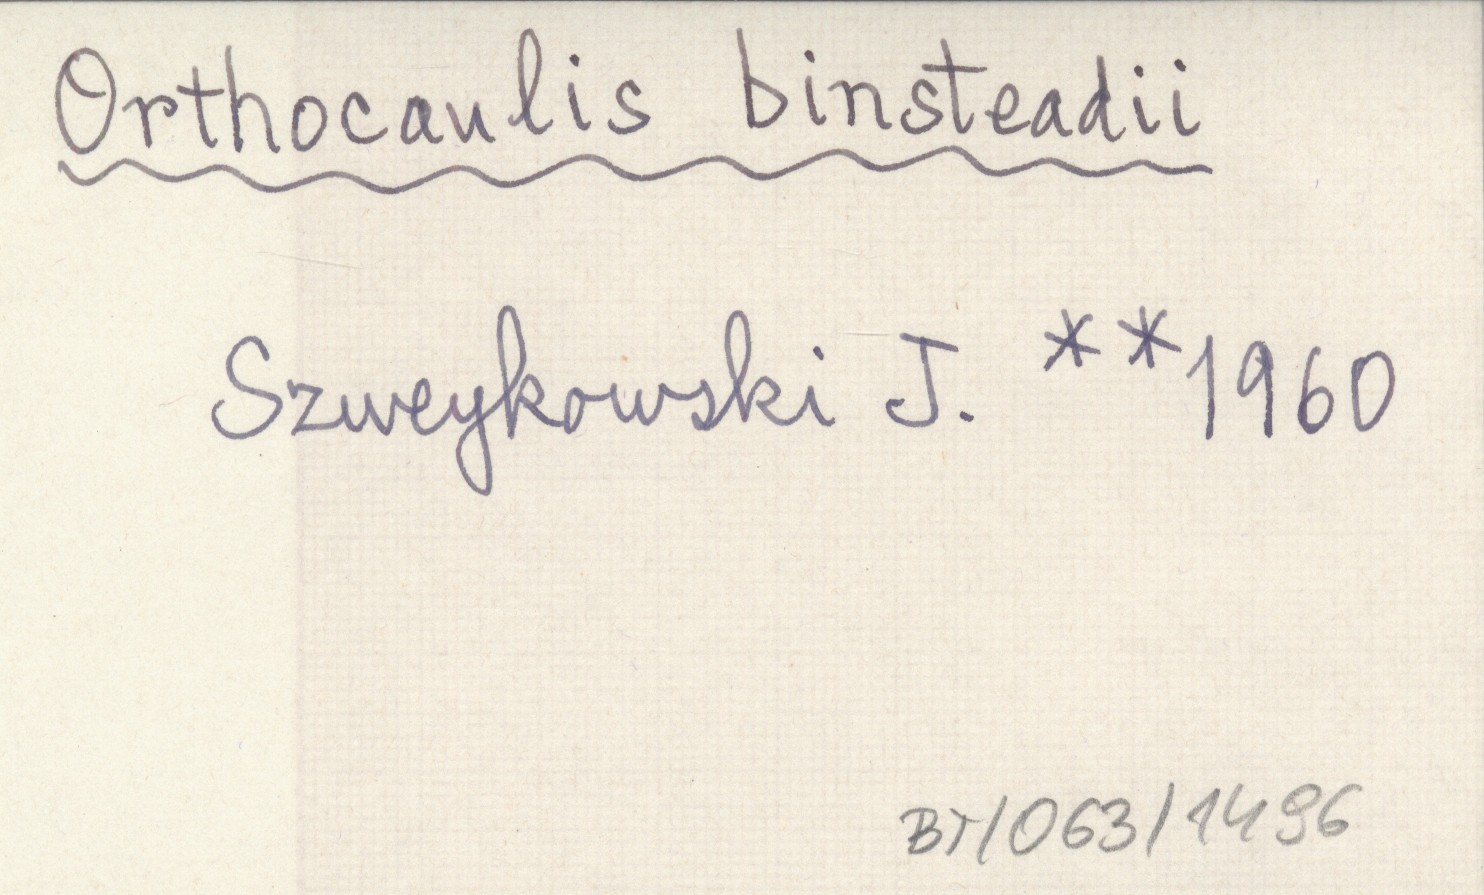 Orthocaulis binsteadii
Szweykowski J. **1960
BT/063/1496